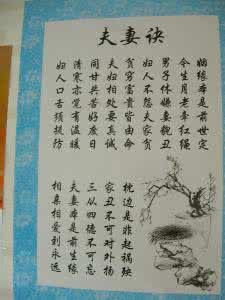 夫妻诀
姻缘本是前世定
令生月老牵红绳
男子休嫌妻貌丑
妇人不怨夫家贫
贫穷富贵皆由命
夫妇相处要真诚
同甘共苦好度日
清寒亦觉有温暖
妇人口舌须提防
枕边是非起祸殃
家丑不可对外扬
三从四德不可忘
夫妻本是前生缘
相亲相爱到永远